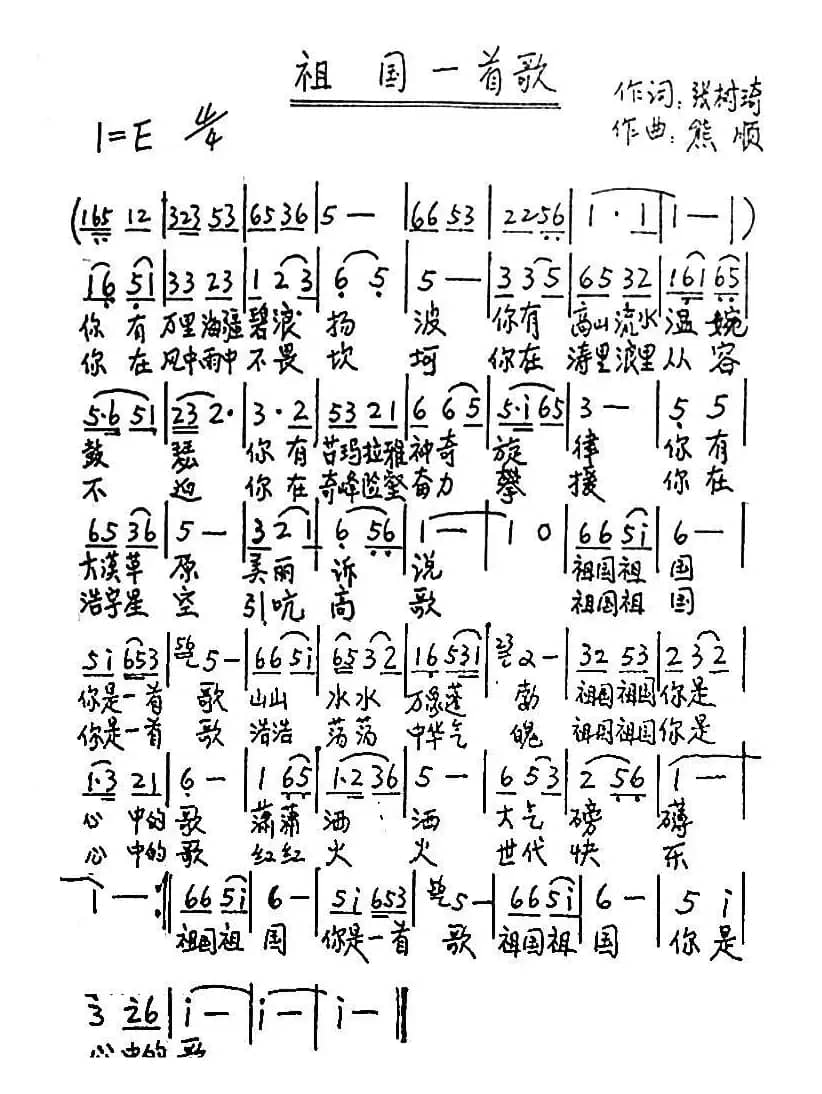 祖国一首歌
作词：张树琦
1=E 4/4
作曲：熊顺
(165 12 | 323 53 | 6536 | 5 — | 66 53 | 2256 | 1 · 1 | 1 — | )
16 51 | 33 23 | 1 23 | 6 5 | 5 — | 3 35 | 65 32 | 161 65 |
你有万里海疆碧浪扬波你有高山流水温婉
你在风中雨中不畏坎坷你在涛里浪里从容
5·6 51 | 23 2· | 3·2 | 53 21 | 6 65 | 5·i 65 | 3 — | 5 5 |
鼓瑟你有苕玛拉雅神奇旋律你有
不迫你在奇峰险壑奋力攀援你在
65 36 | 5 — | 3 21 | 6 56 | 1 — | 1 0 | 66 5i | 6 — |
大漠草原美丽诉说祖国祖国
浩宇星空引吭高歌祖国祖国
5i 653 | 56 5 — | 66 5i | 65 32 | 16 531 | 23 2 — | 32 53 | 2 32 |
你是一首歌山山水水万象蓬勃祖国祖国你是
你是一首歌浩浩荡荡中华气魄祖国祖国你是
1·3 21 | 6 — | 1 65 | 1·2 36 | 5 — | 6 53 | 2 56 | 1 — |
心中的歌潇潇洒洒大气磅礴
心中的歌红红火火世代快乐
i — :‖ 66 5i | 6 — | 5i 653 | 5 — | 66 5i | 6 — | 5 i |
祖国祖国你是一首歌祖国祖国你是
3 26 | i — | i — | i — ‖
心中的歌